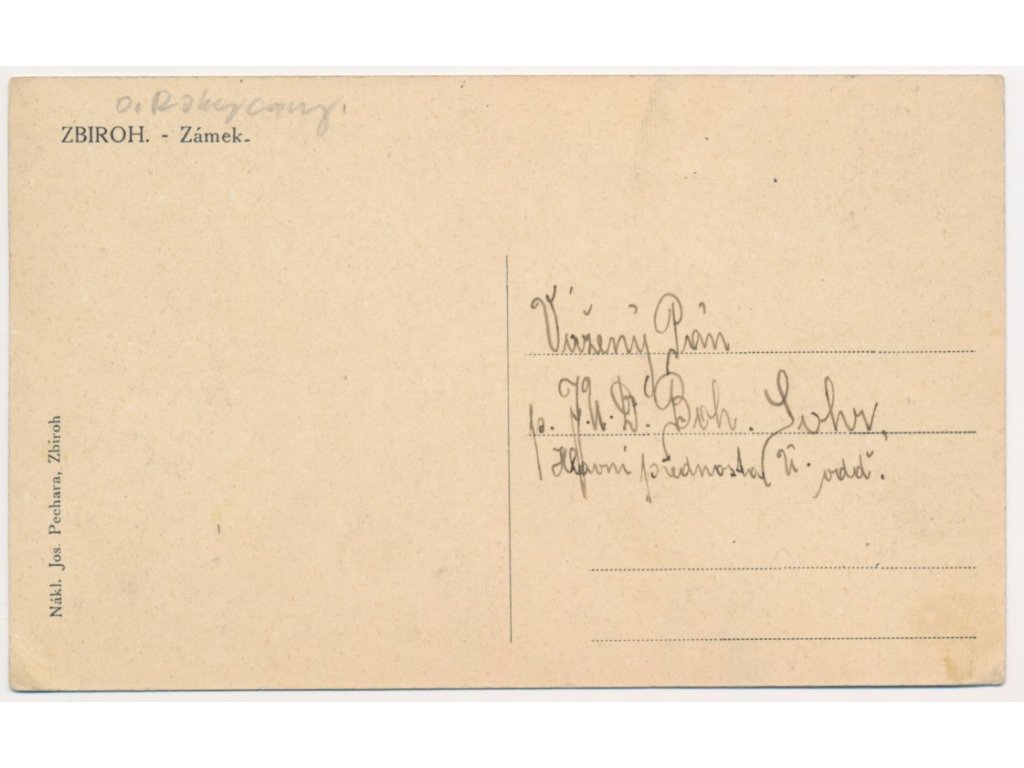 o. Rokycany.
ZBIROH. - Zámek.
Nákl. Jos. Pechara, Zbiroh
Vážený Pán
p. J.U.D. Boh. Sohr,
Hlavní přednosta Ú. odd.